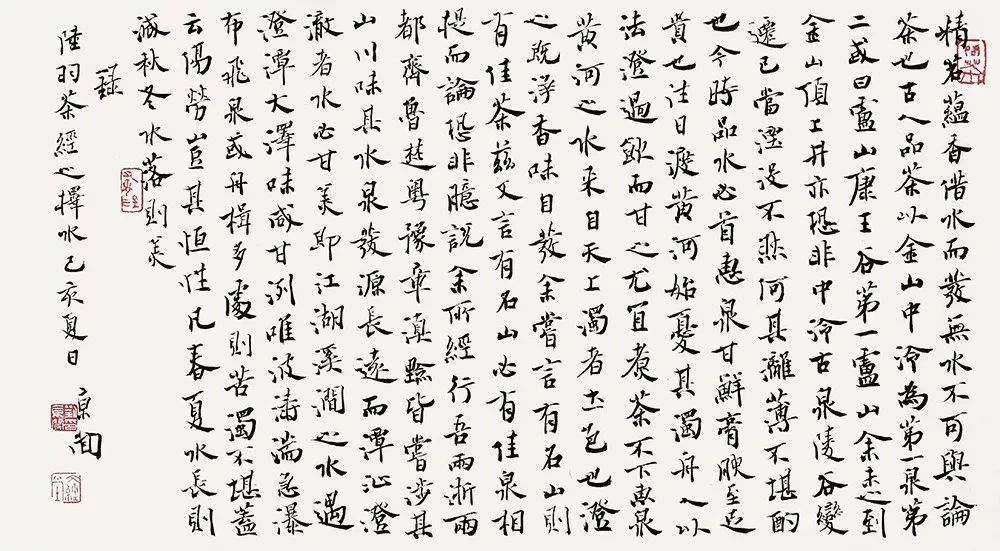 精茗蘊香借水而發無水不可與論
茶也古人品茶以金山中泠為第一泉第
二或曰盧山康王谷第一盧山余未之到
金山頂上井亦恐非中泠古泉陵谷變
遷已當湮没不然何其漓薄不堪酌
也今時品水必首惠泉甘鮮膏腴至足
貴也往日渡黄河始憂其濁舟人以
法澄過飲而甘之尤宜煮茶不下惠泉
黄河之水来自天上濁者土色也澄
之既淨香味自發余嘗言有名山則
有佳茶兹又言有名山必有佳泉相
提而論恐非臆說余所經行吾兩浙兩
都齊魯楚粤豫章滇黔皆嘗涉其
山川味其水泉發源長遠而潭沚澄
澈者水必甘美即江湖溪澗之水遇
澄潭大澤味咸甘洌唯波濤湍急瀑
布飛泉或舟楫多處則苦濁不堪蓋
云傷勞豈其恒性凡春夏水長則
減秋冬水落則美
錄
陸羽茶經之擇水己亥夏日